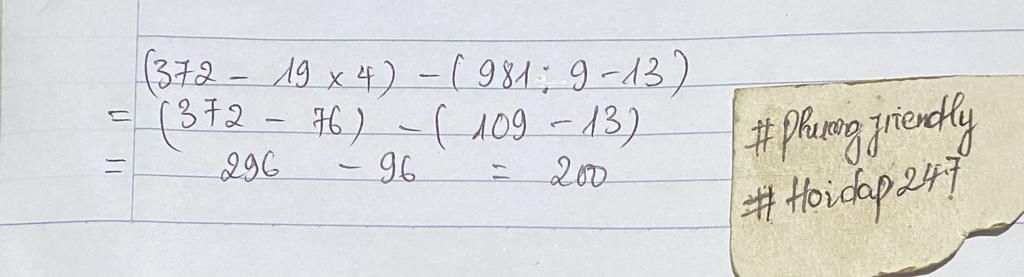 (372 - 19 x 4) - (981 : 9 - 13)
= (372 - 76) - (109 - 13)
= 296 - 96 = 200
# Phuong friendly
# Hoidap247